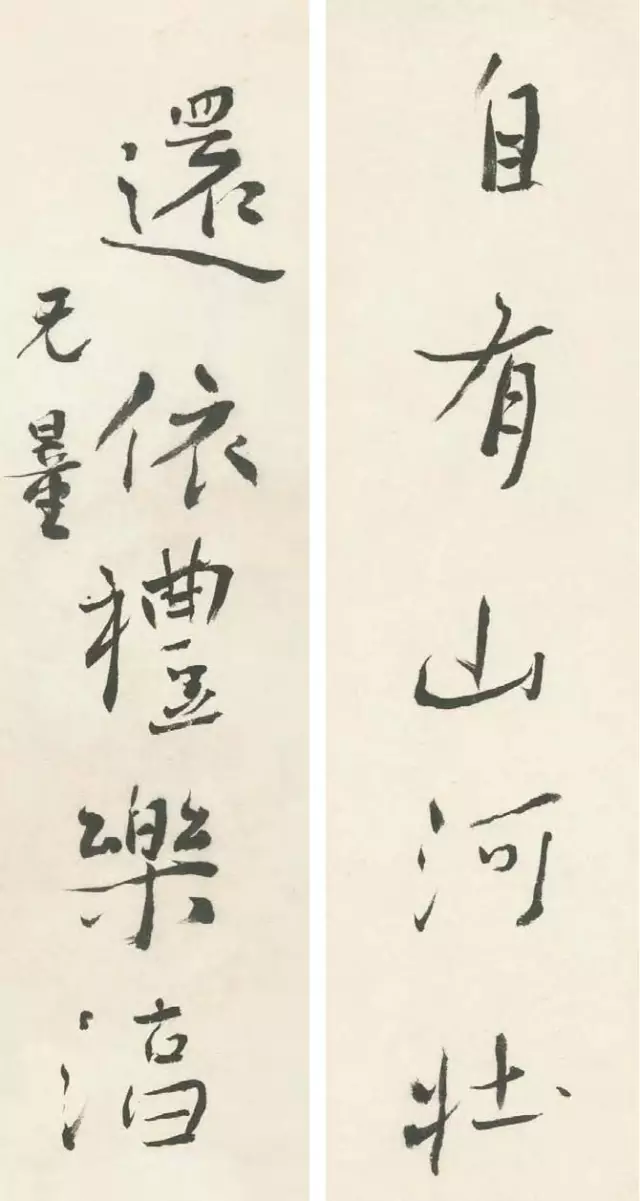 自有山河壮
還依禮樂湻
无量